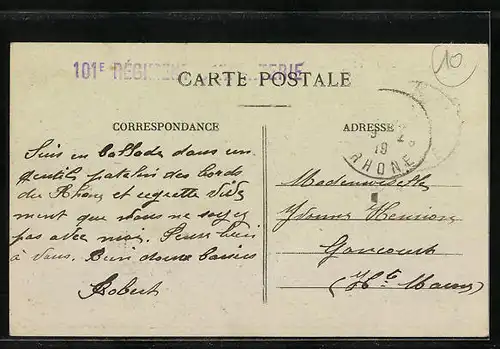 101E RÉGIMENT D'INFANTERIE
10
CARTE POSTALE
CORRESPONDANCE
ADRESSE
19
RHÔNE
Suis en ballade dans un
gentil patelin des bords
du Rhône et regrette
ment que vous ne soyez
pas avec moi. Pensées
à vous. Bien doux baisers
Robert
Mademoiselle
Yvonne
Goncourt
(Hte Marne)